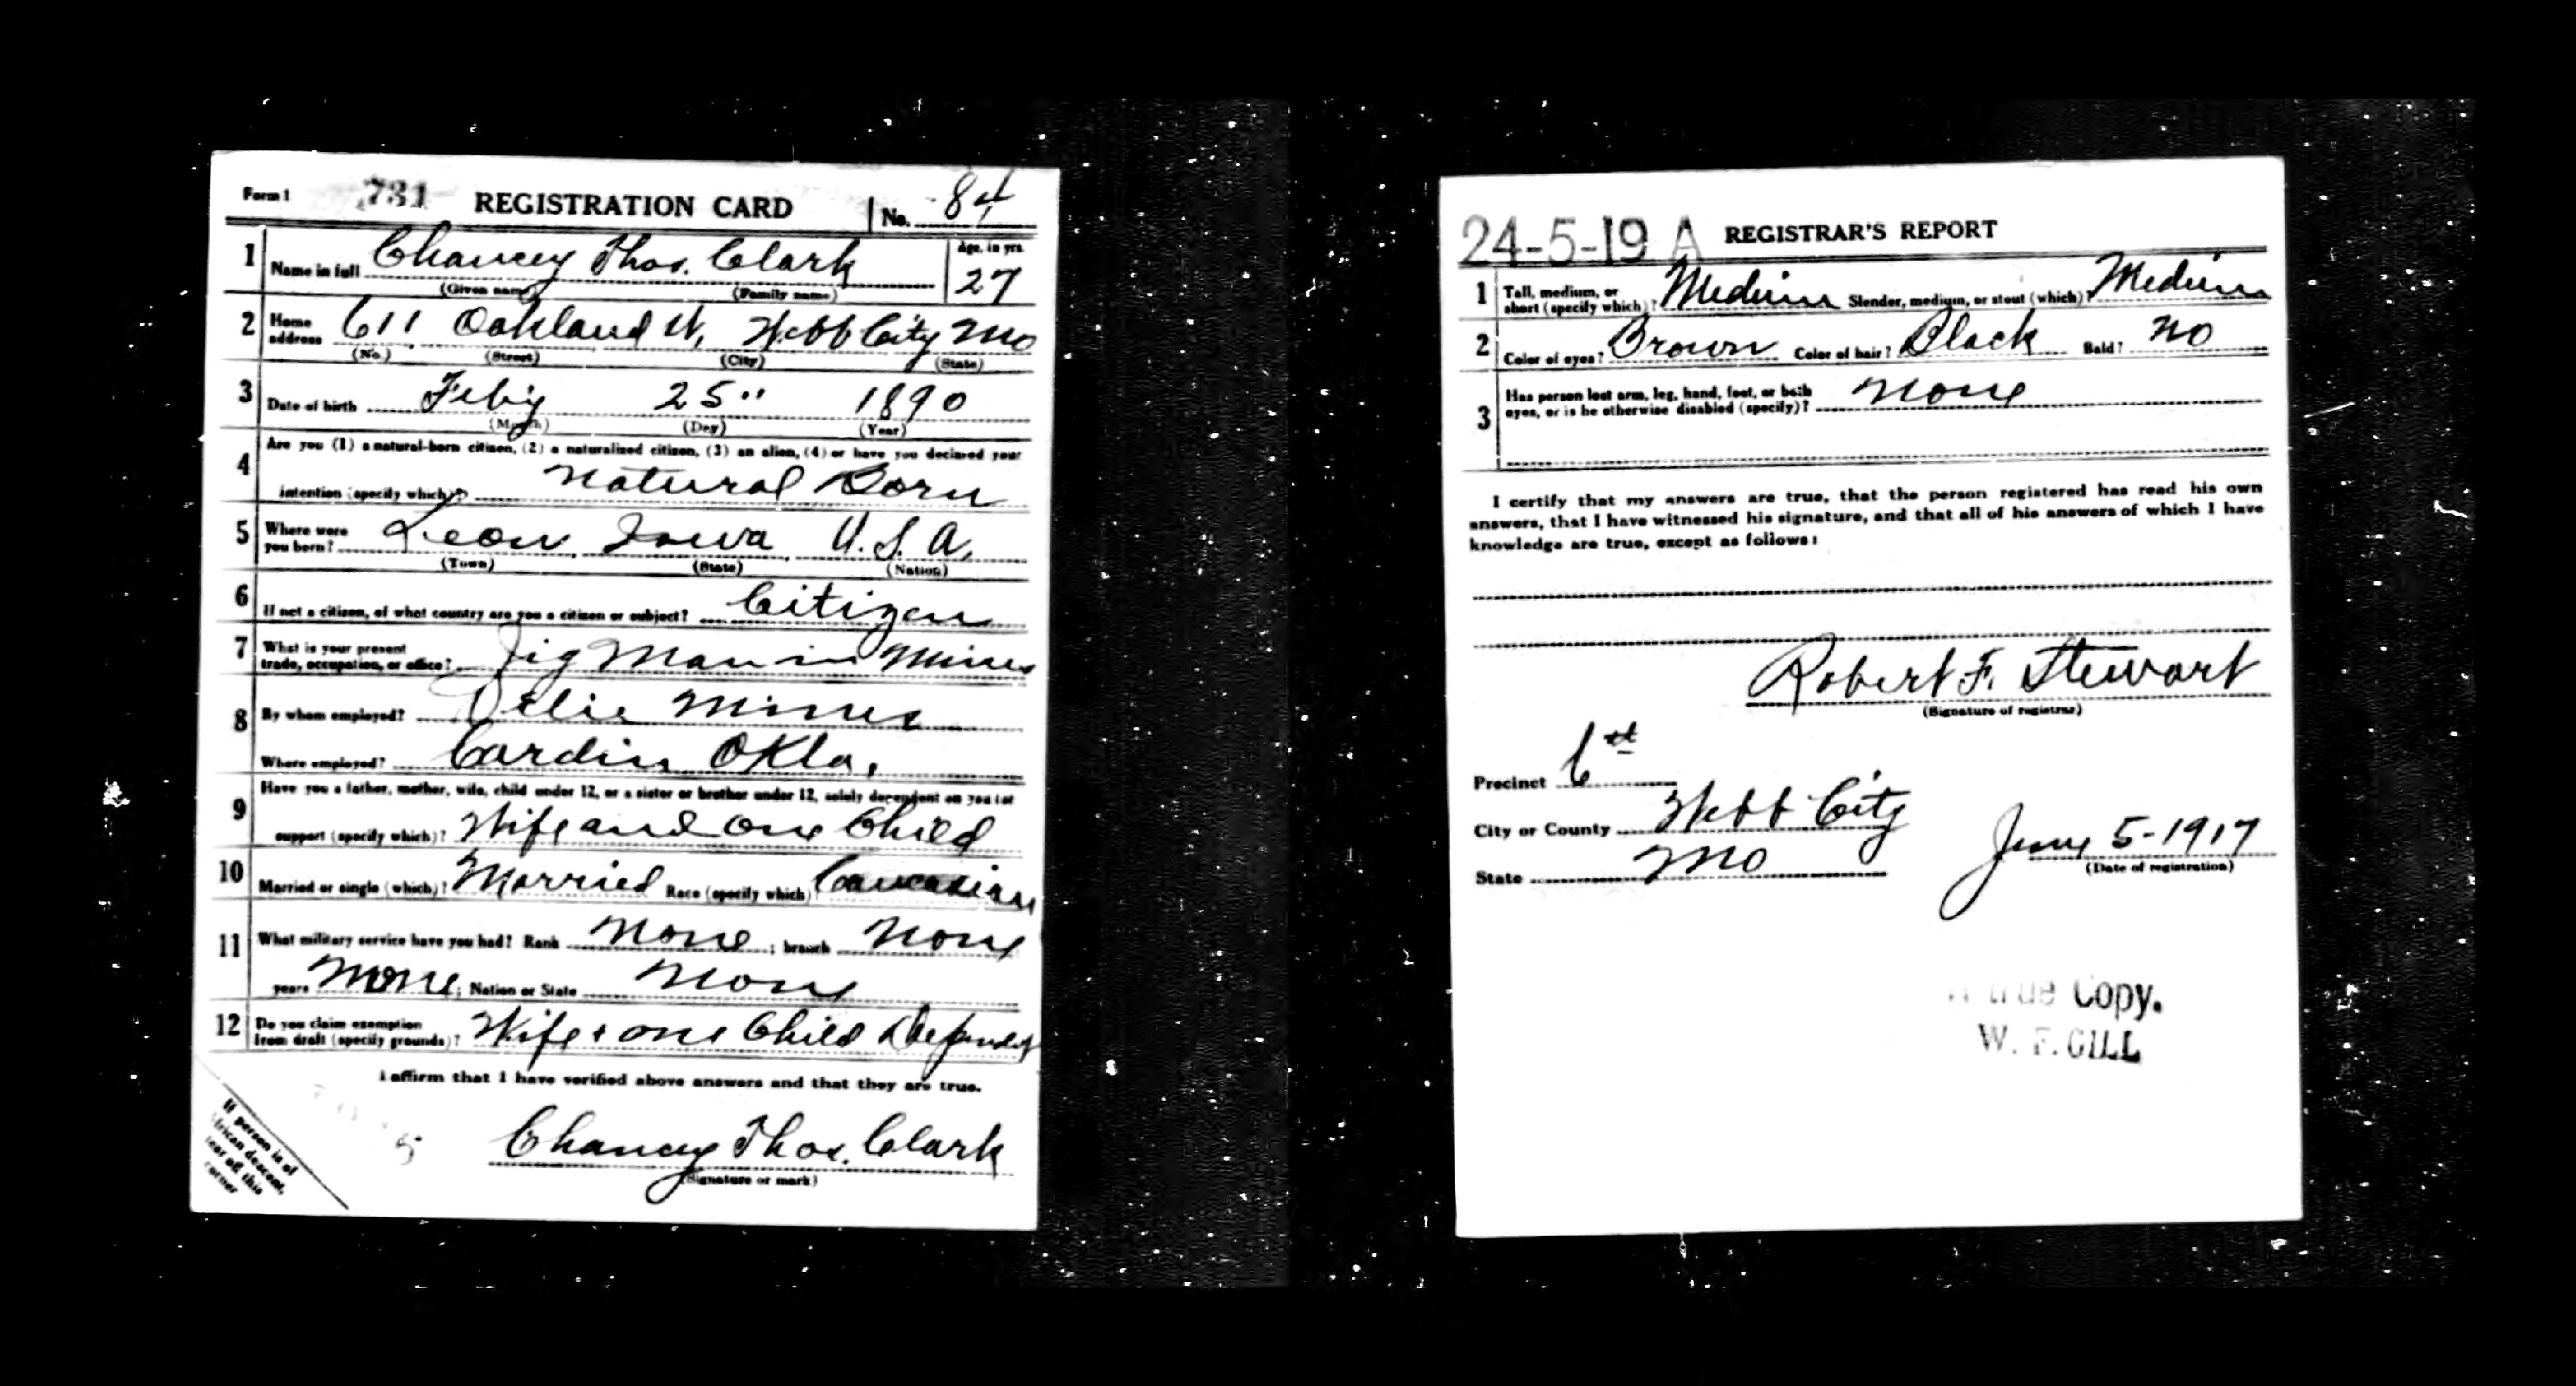 Form 1 731 REGISTRATION CARD No. 84
1 Name in full Chancey Thos. Clark Age, in yrs. 27
(Given name) (Family name)
2 Home address 611 Oakland St, Webb City Mo
(No.) (Street) (City) (State)
3 Date of birth Feby 25" 1890
(Month) (Day) (Year)
4 Are you (1) a natural-born citizen, (2) a naturalized citizen, (3) an alien, (4) or have you declared your
intention (specify which)? Natural Born
5 Where were you born? Leon Iowa U.S.A.
(Town) (State) (Nation)
6 If not a citizen, of what country are you a citizen or subject? Citizen
7 What is your present trade, occupation, or office? Jig Man in Mines
8 By whom employed? Mines
Where employed? Cardin Okla.
9 Have you a father, mother, wife, child under 12, or a sister or brother under 12, solely dependent on you for
support (specify which)? Wife and one Child
10 Married or single (which)? Married Race (specify which)? Caucasian
11 What military service have you had? Rank None; branch None
years None; Nation or State None
12 Do you claim exemption from draft (specify grounds)? Wife + one Child
I affirm that I have verified above answers and that they are true.
Chancey Thos. Clark
(Signature or mark)
If person is of
African descent,
tear off this
corner
24-5-19 A REGISTRAR'S REPORT
1 Tall, medium, or short (specify which)? Medium Slender, medium, or stout (which)? Medium
2 Color of eyes? Brown Color of hair? Black Bald? No
3 Has person lost arm, leg, hand, foot, or both eyes, or is he otherwise disabled (specify)? None
I certify that my answers are true, that the person registered has read his own
answers, that I have witnessed his signature, and that all of his answers of which I have
knowledge are true, except as follows:
Robert F. Stewart
(Signature of registrar)
Precinct
City or County Webb City
State Mo
June 5-1917
(Date of registration)
true Copy.
W. F. GILL